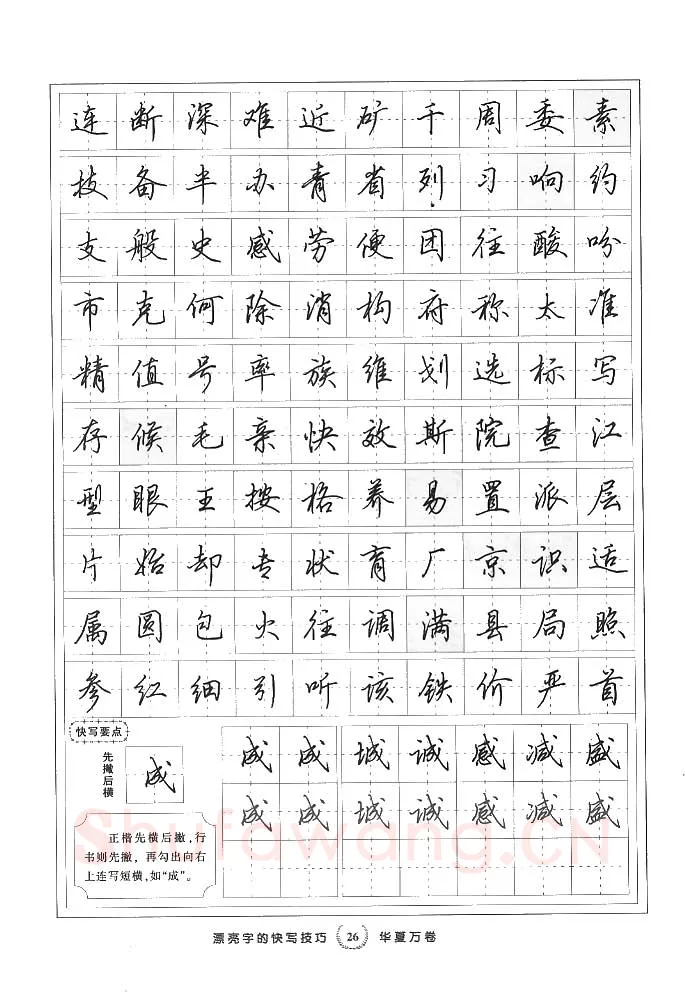 连断深难近矿千周委素
技备半办青省列习响约
支般史感劳便团往酸
市克何除消构府称太准
精值号率族维划选标写
存候毛亲快效斯院查江
型眼王按格养易置派层
片始却专状育厂京识适
属圆包火住调满县局照
参红细引听该铁价严首
快写要点
先撇后横
成
成成城诚感减盛
成成城诚感减盛
正楷先横后撇,行
书则先撇,再勾出向右
上连写短横,如“成”。
Shufawang.cn
漂亮字的快写技巧 26 华夏万卷